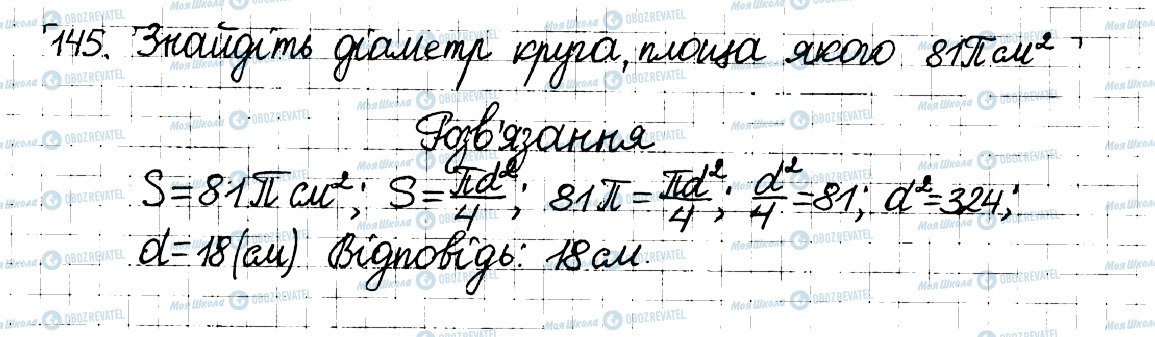 145. Знайдіть діаметр круга, площа якого 81π см²
Розв'язання
S=81π см²; S=πd²/4; 81π=πd²/4; d²/4=81; d²=324;
d=18(см) Відповідь: 18см.